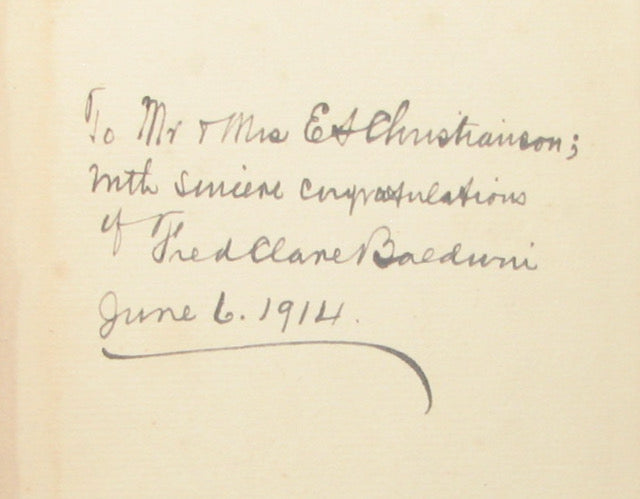 To Mr & Mrs E S Christianson;
With sincere congratulations
of Fred Clare Baldwin
June 6. 1914.